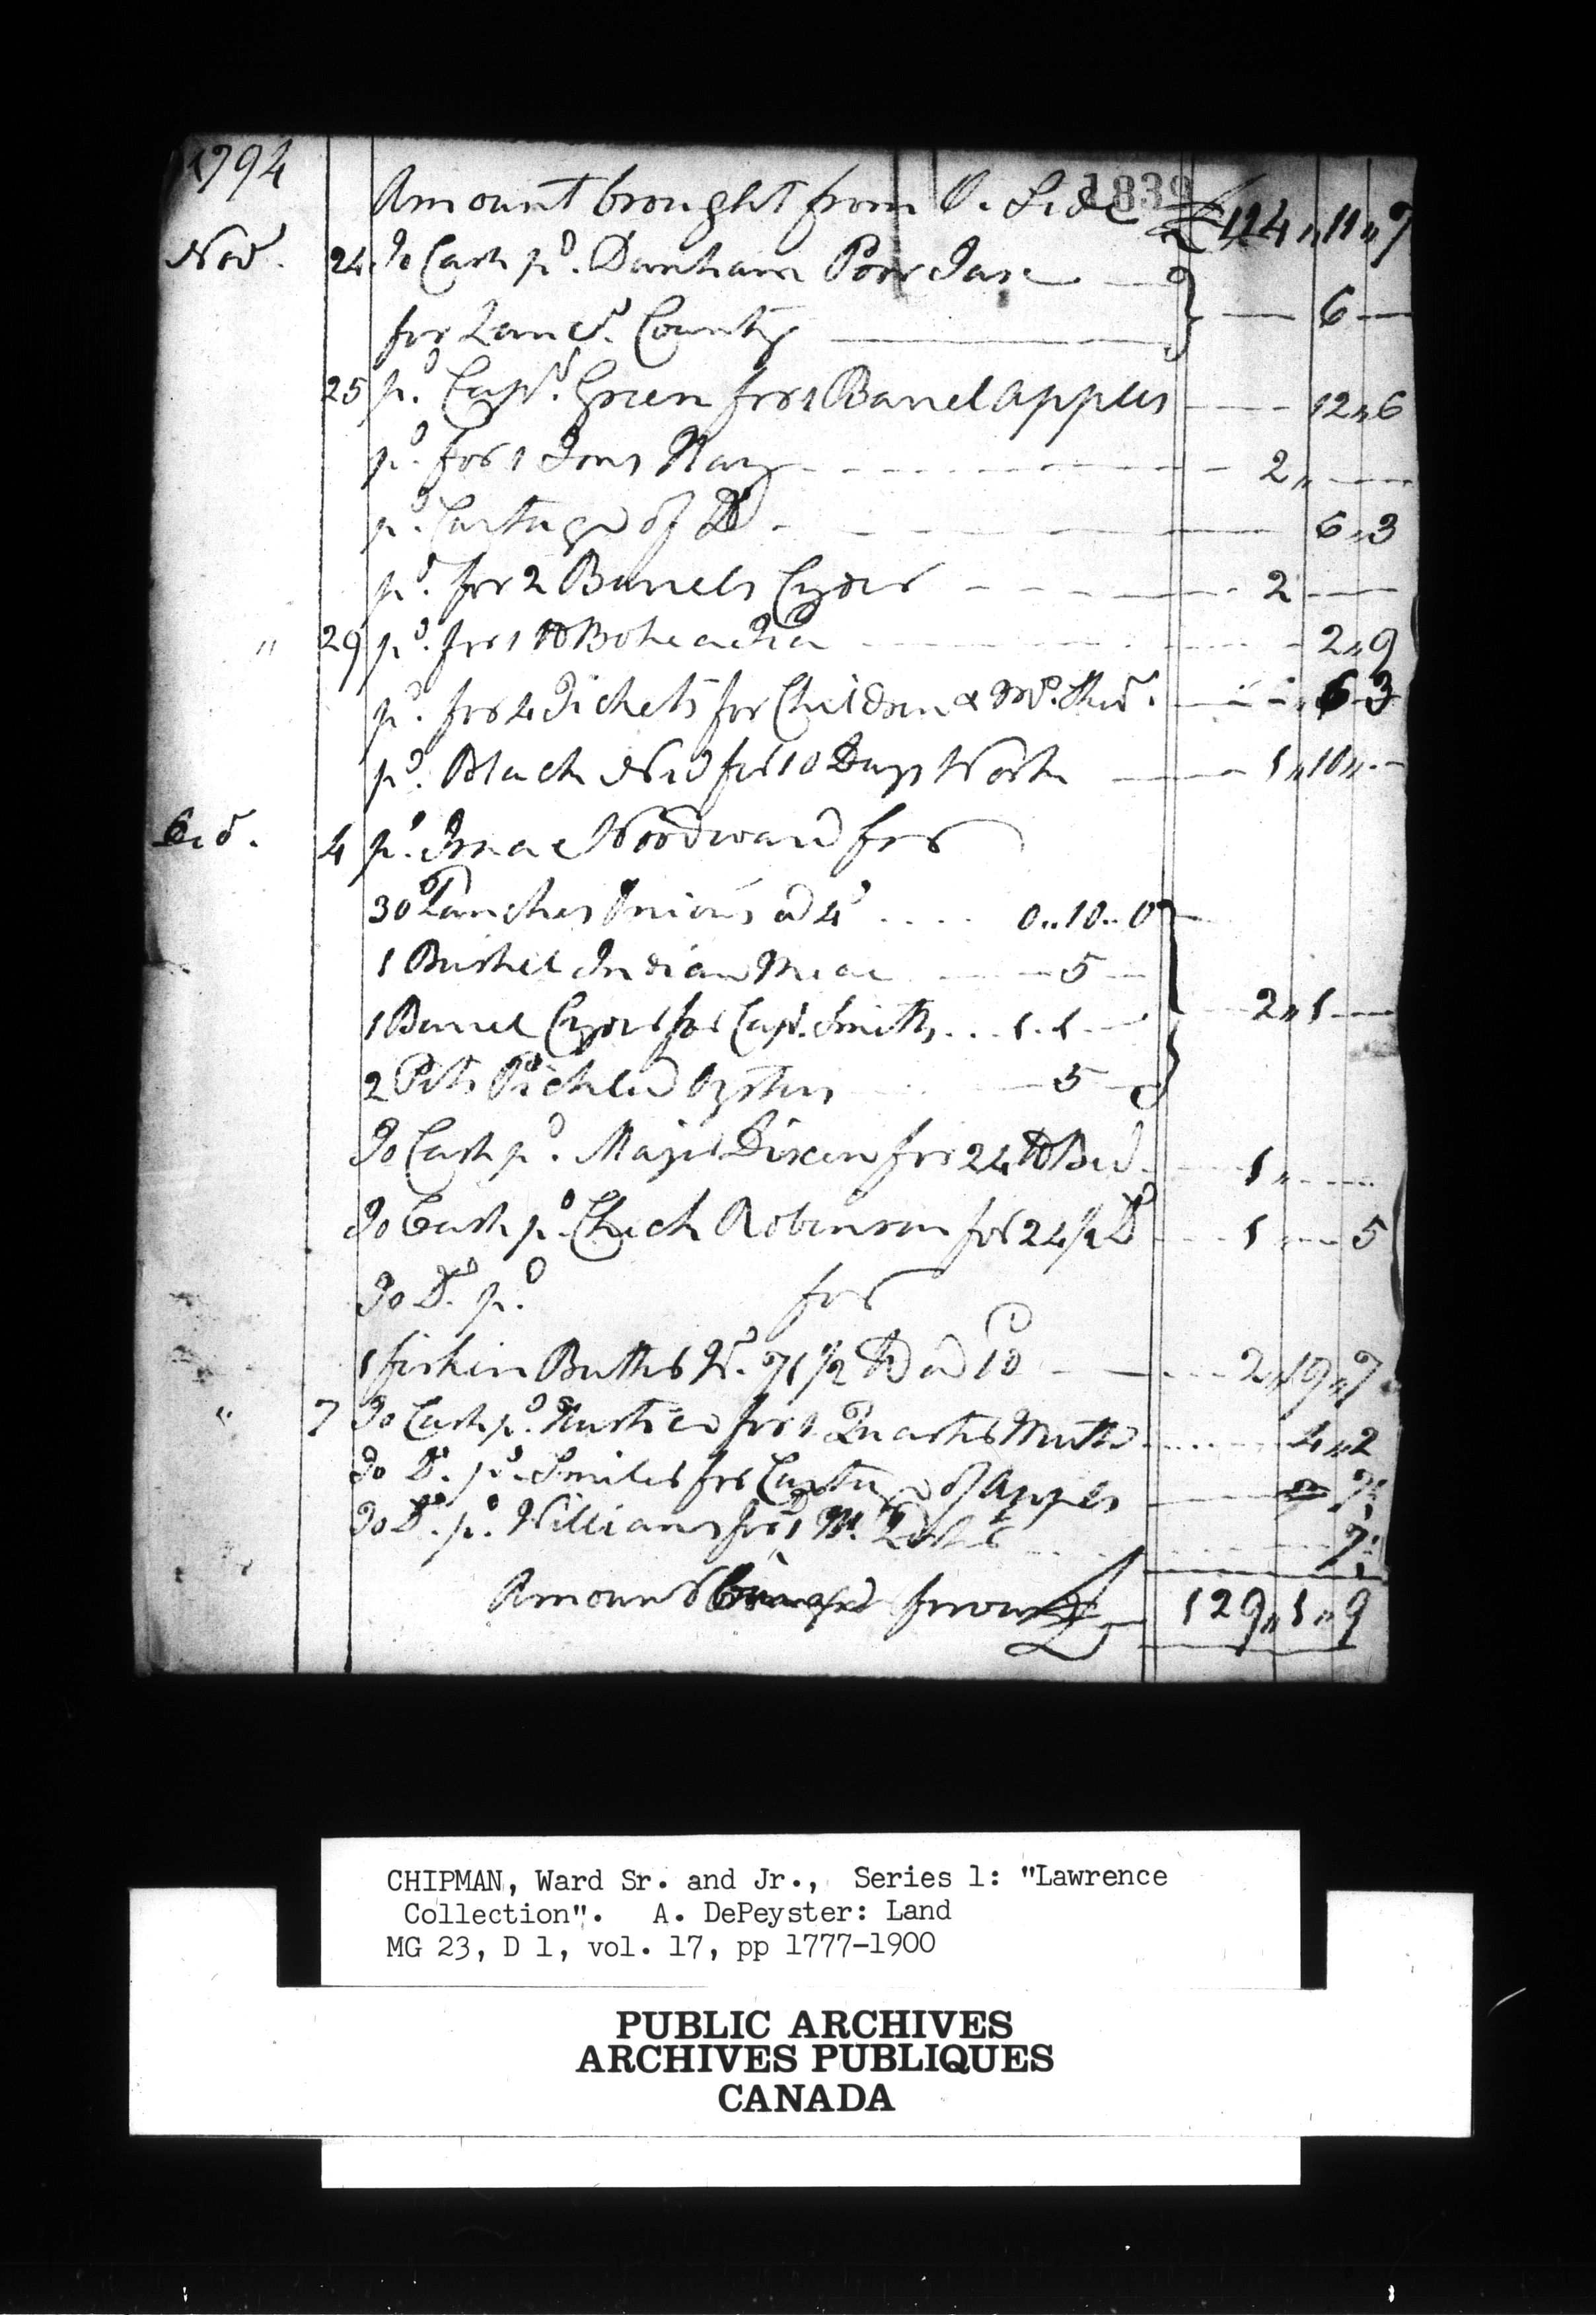 1794
1839
Amount brought from O. Side £ 114,, 11,, 7
Novr. 24 To Cash pd. Dunham Poor Tax
for County 6
25 pd. Capt. Green for 1 Barrel Apples 12,, 6
pd. for 1 Tons Hay 2,,
pd. Cartage of Do 6,, 3
pd. for 2 Barrels Cyder 2
" 29 pd. for 1 lb Bohea Tea 2,, 9
pd. for 4 Tickets for Children & 6 3
pd. Black Ned for 10 Days Work 1,, 10,,
4 pd. Isaac Woodward for
30 Bunches Onions @ 4d 0..10..0
1 Bushel Indian Meal 5
1 Barrel Cyder for Capt. Smith 1..1 2,, 1
2 Pickled Oysters 5
To Cash pd. Major Dixon for 24 lb 1,,
To Cash pd. Robinson for 24 1/2 Do 1 5
To Do. pd. for
1 firkin Butter Wt. 71 1/2 lb @ 10 2,, 19,, 7
" 7 To Cash pd. for 1 Quarter Mutton 4,, 2
To Do. pd. Smiler for Cartage of Apples 7 1/2
To Do. pd. Williams for 7 1/2
Amount £ 129,, 1,, 9
CHIPMAN, Ward Sr. and Jr., Series 1: "Lawrence
Collection". A. DePeyster: Land
MG 23, D 1, vol. 17, pp 1777-1900
PUBLIC ARCHIVES
ARCHIVES PUBLIQUES
CANADA